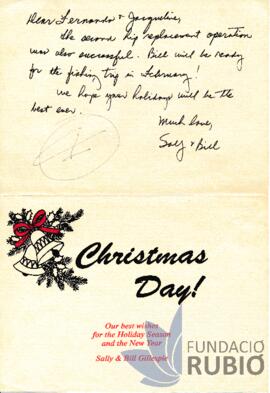 Dear Fernando & Jacqueline,
The second hip replacement operation
was also successful. Bill will be ready
for the fishing trip in February!
We hope your holidays will be the
best ever.
Much love,
Sally & Bill
Christmas
Day!
Our best wishes
for the Holiday Season
and the New Year
Sally & Bill Gillespie
FUNDACIÓ
RUBIÓ